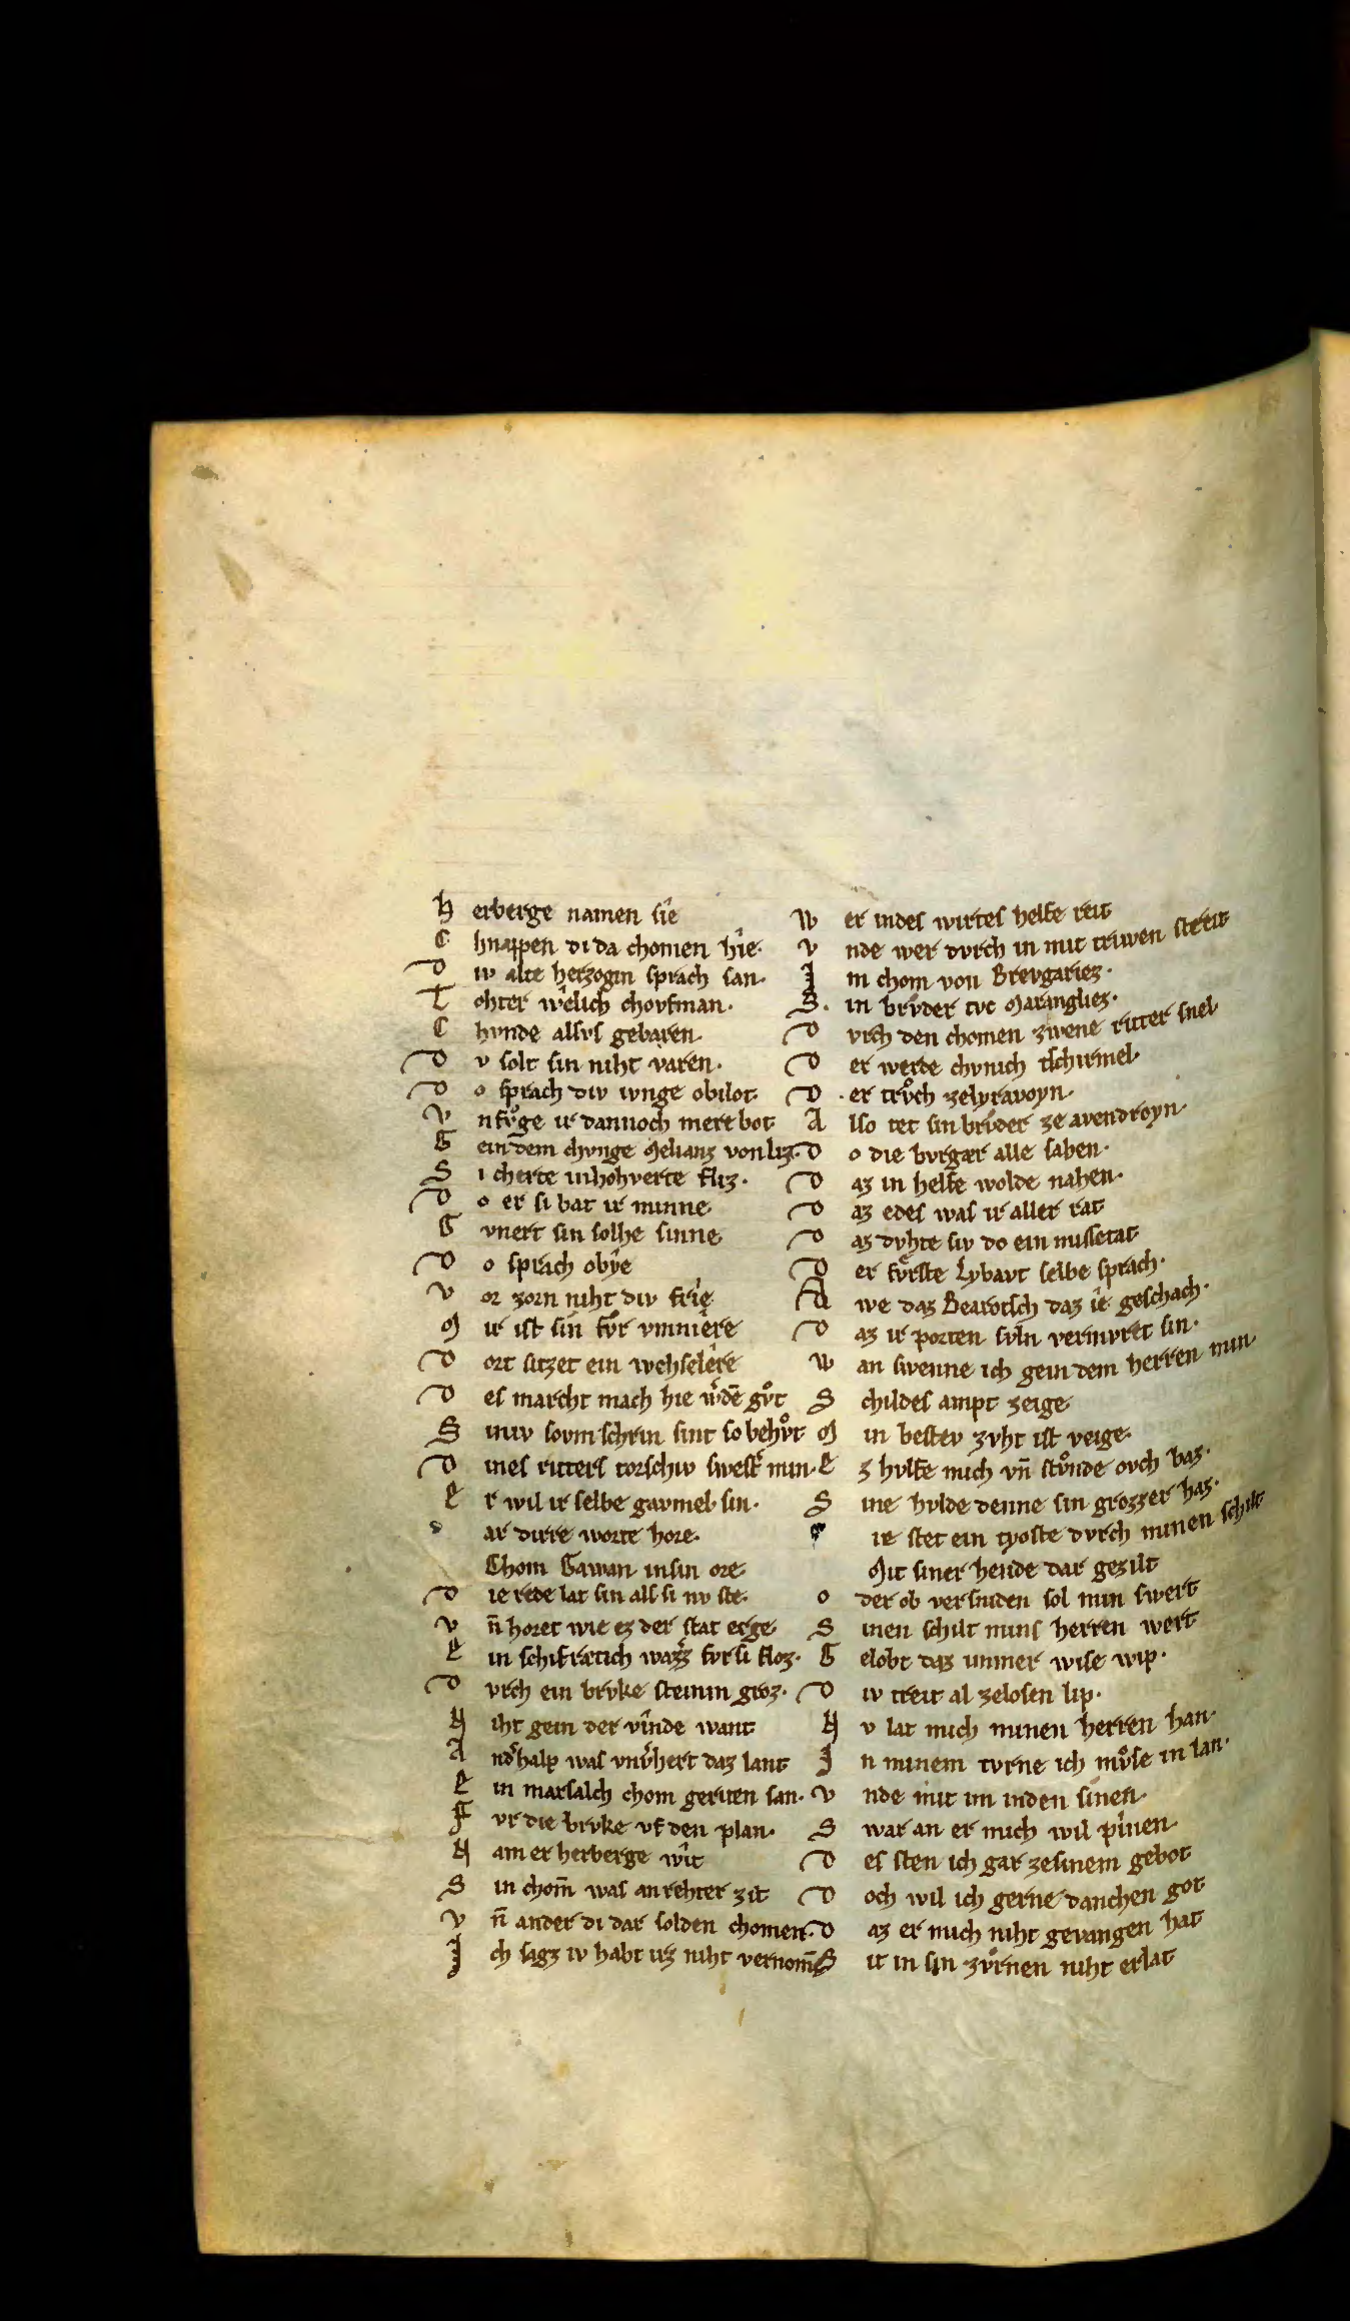 H erberge namen sîe
C hnappen di da chomen hîe.
D iv alte herzogin sprach san.
T ohter wêlich chovfman.
C hvnde alsvs gebaren.
D v solt sin niht varen.
D o sprach div ivnge obilot.
V nfvͦge ir dannoch mere bot
G ein dem chvnge Melianz von liz.
S i cherte inhohverte fliz.
D o er si bat ir minne
G vnert sin solhe sinne
D o sprach obŷe
V or zorn niht div frîe
M ir ist sin fvͦr vnmære
D ort sitzet ein wehselêre
D es marcht mach hie w̾dē gvͦt
S iniv sovmschrin sint so behvͦt
D ines ritters torschiv swest̾ min.
E r wil ir selbe gavmel sin.
D ar dirre worte hore.
Chom Gawan insin ore
D ie rede lat sin als si nv ste.
V n̄ horet wie ez der stat erge.
E in schifrætich wazz̾ fvr si floz.
D vrch ein brvke steinin groz.
N iht gein der vînde want
A nd̾halp was vnv̾hert daz lant
E in marsalch chom geriten san.
F vr die brvke vf den plan.
N am er herberge wît
S in chom̄ was an rehter zit
V n̄ ander di dar solden chomen.
I ch sagz iv habt irz niht vernom̄
W er indes wirtes helfe reit
V nde wer dvrch in mit triwen streit
I m chom von Brevgariez.
S in brvder tvc Marangliez.
D vrch den chomen zwene ritter snel
D er werde chvnich tschirniel.
D er trvͦch zelyravoyn.
A lso tet sin brvder ze avendroyn.
D o die bvrgær alle sahen.
D az in helfe wolde nahen.
D az edes was ir aller rat
D az dvhte siv do ein missetat
D er fvͤrste Lybavt selbe sprach.
A we daz Bearotsch daz îe geschach.
D az ir porten svln vermvret sin.
W an swenne ich gein dem herren min.
S childes ampt zeige
M in bestev zvht ist veige.
E z hvlfe mich vn̄ stvͦnde ovch baz.
S ine hvlde denne sin grozzer haz.
ie stet ein tyoste dvrch minen schilt
Mit siner hende dar gezilt
O der ob versniden sol min swert
S inen schilt mins herren wert
G elobt daz immer wise wip.
D iv treit al zelosen lip.
N v lat mich minen herren han.
I n minem tvrne ich mvͦse in lan.
V nde mit im inden sinen.
S war an er mich wil pînen.
D es sten ich gar zesinem gebot
D och wil ich gerne danchen got
D az er mich niht gevangen hat
S it in sin zvͤrnen niht erlat